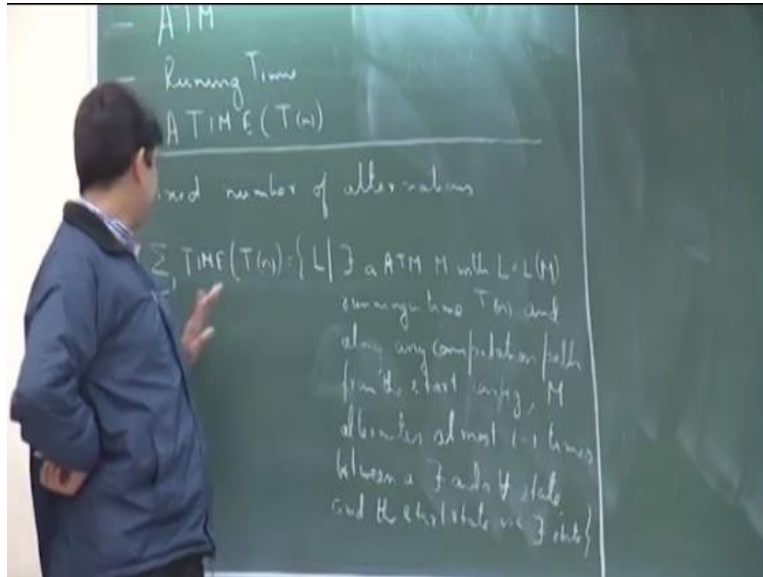 - ATM
- Runing Time
ATIME(T(n))
ixed number of alternations
Σ TIME(T(n)) = { L | ∃ a ATM M with L = L(M)
running time T(n) and
along any computation path
from the start config, M
alternates at most i-1 times
between a ∃ and a ∀ state
and the start state is a ∃ state }